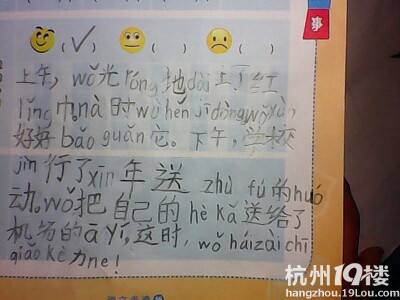 事
( ✓ ) ( ) ( )
上午，wǒ光róng地dài上了红
lǐng巾。nà时wǒ hěn jī dòng,wǒ yào
好好bǎo guǎn它。下午，学校
jìn行了xīn年送 zhù fú 的huó
动。wǒ把自己的 hè kǎ 送给了
机场的ā yí，这时，wǒ hái zài chī
qiǎo kè力ne！
杭州19楼
hangzhou.19Lou.com